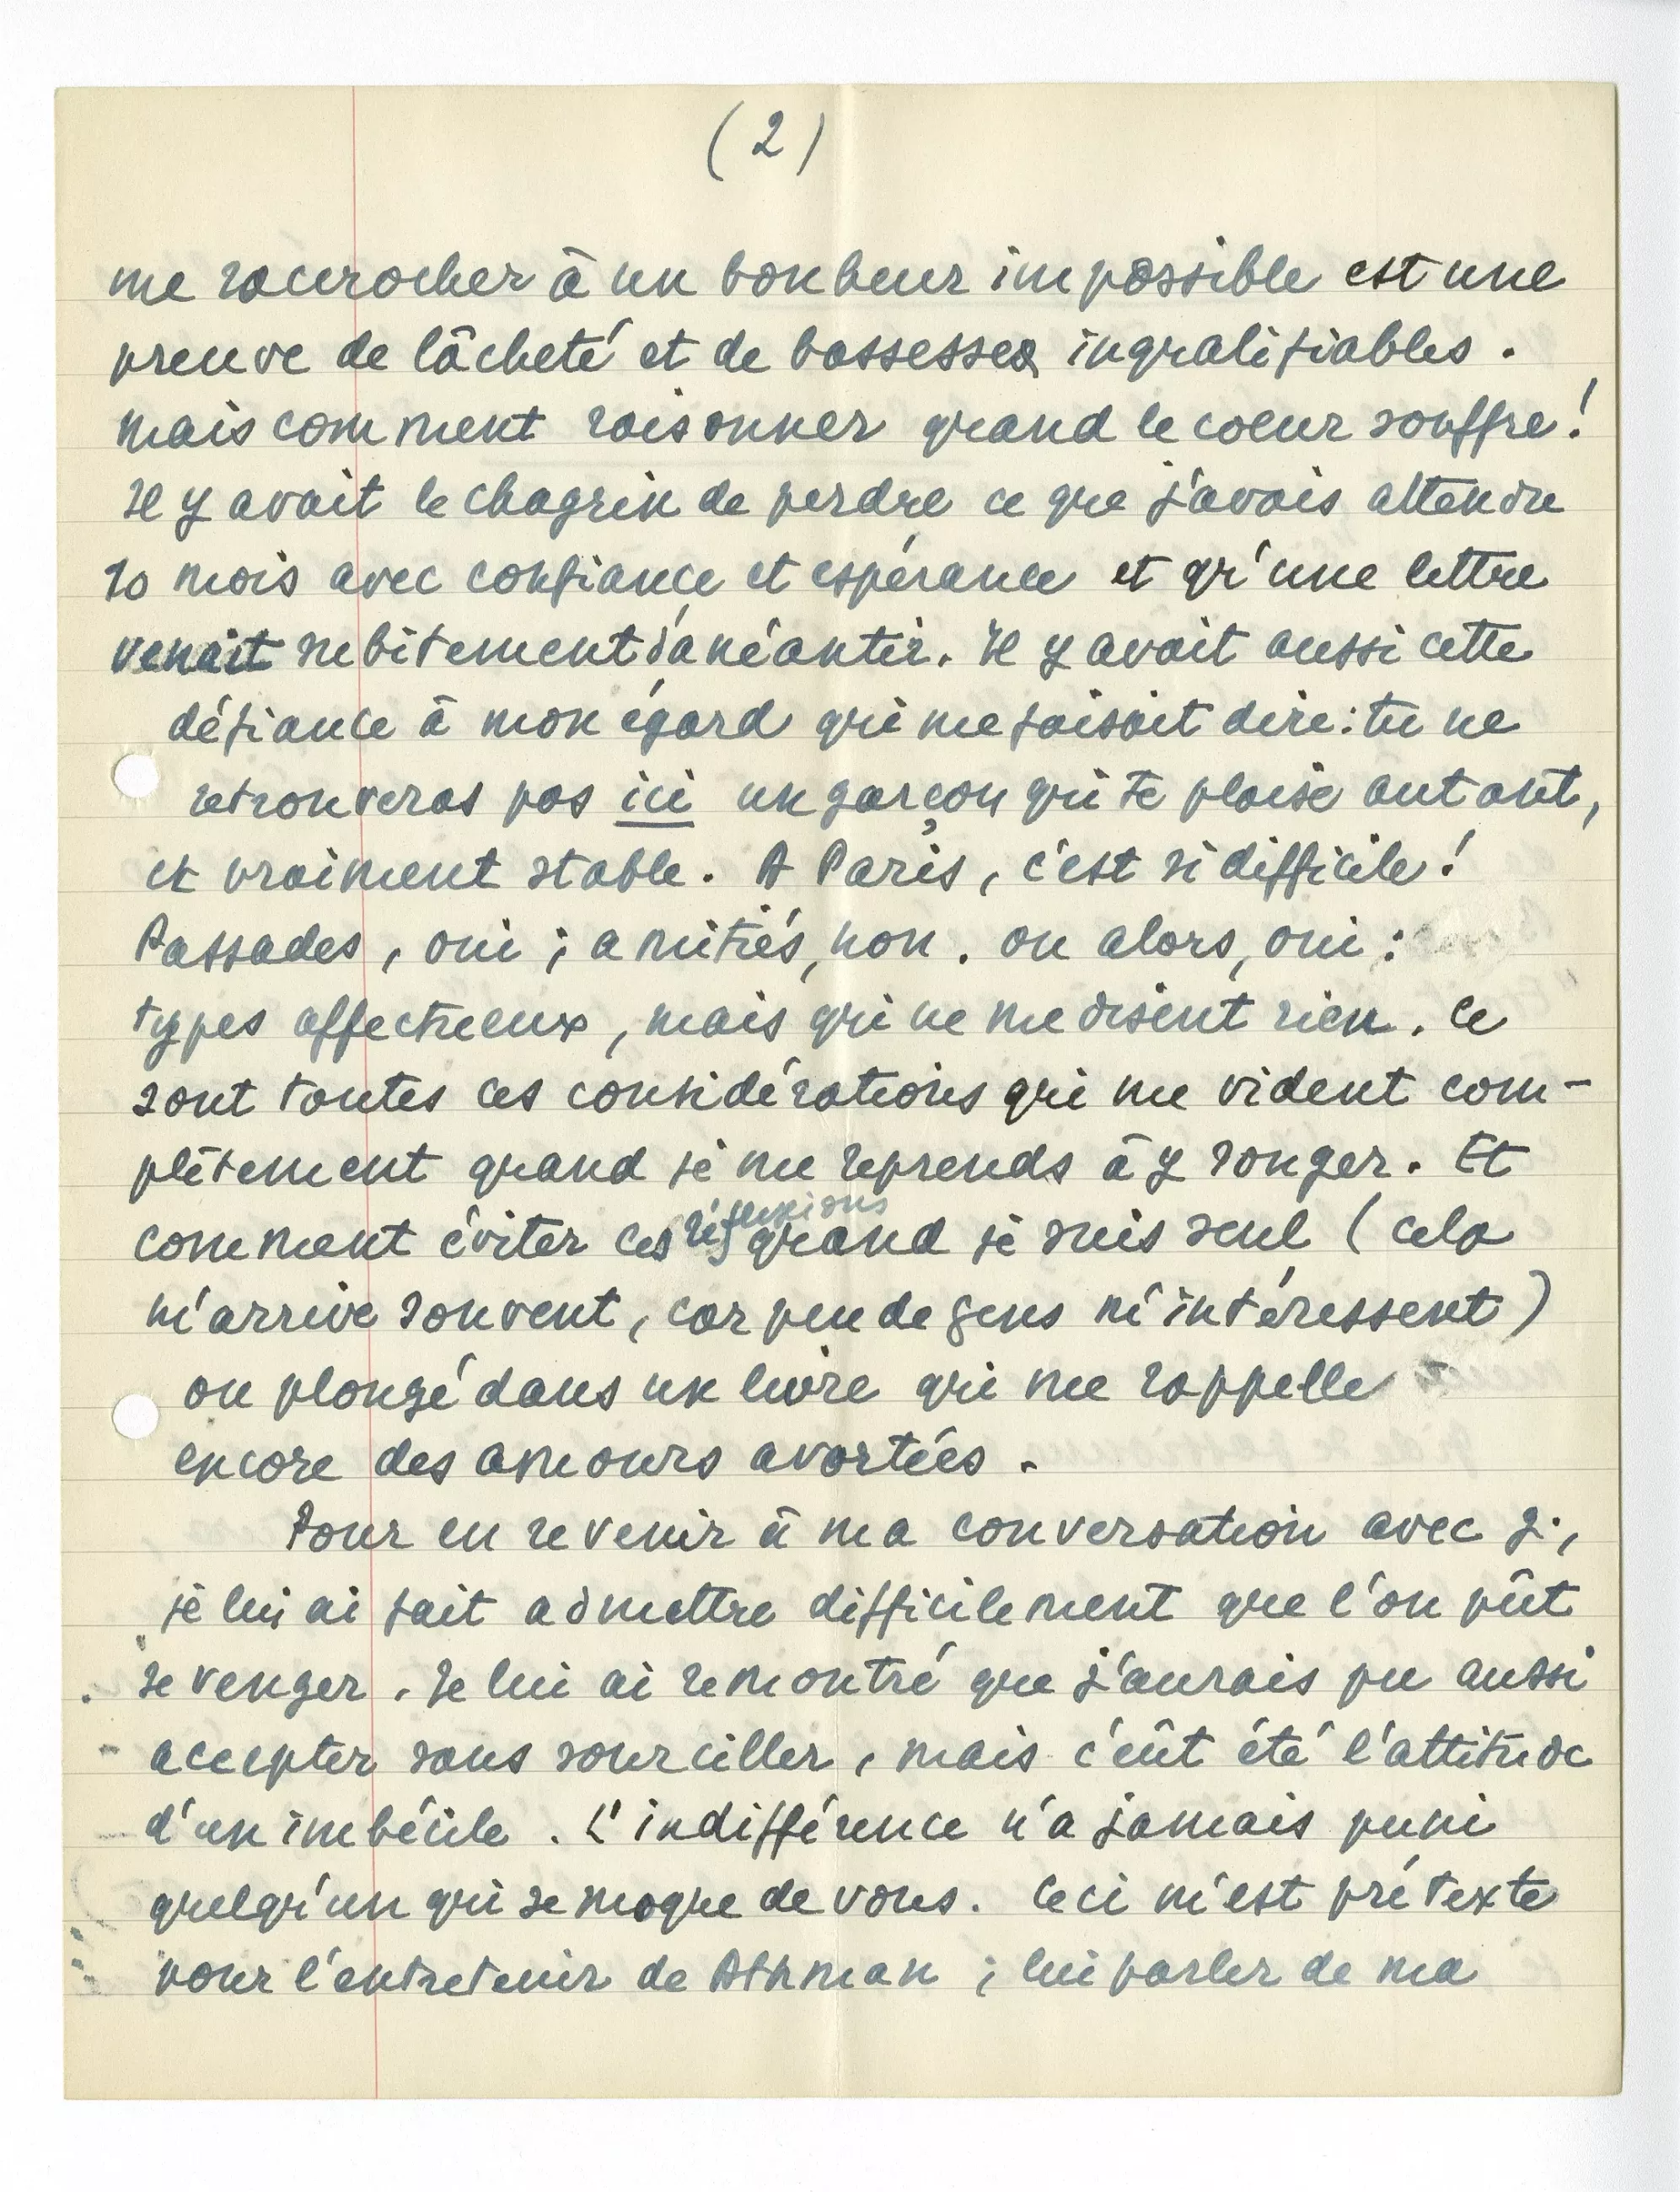 (2)
me raccrocher à un bonheur impossible est une
preuve de lâcheté et de bassesses inqualifiables.
Mais comment raisonner quand le coeur souffre!
Il y avait le chagrin de perdre ce que j'avais attendu
10 mois avec confiance et espérance et qu'une lettre
venait subitement d'anéantir. Il y avait aussi cette
défiance à mon égard qui me faisait dire: tu ne
retrouveras pas ici un garçon qui te plaise autant,
et vraiment stable. A Paris, c'est si difficile!
Passades, oui; amitiés, non. ou alors, oui:
types affectueux, mais qui ne me disent rien. Ce
sont toutes ces considérations qui me vident com-
plètement quand je me reprends à y songer. Et
comment éviter ces réflexions quand je suis seul (cela
m'arrive souvent, car peu de gens m'intéressent)
ou plongé dans un livre qui me rappelle
encore des amours avortées.
Pour en revenir à ma conversation avec G.,
je lui ai fait admettre difficilement que l'on pût
se venger. Je lui ai remontré que j'aurais pu aussi
accepter sans sourciller, mais c'eût été l'attitude
d'un imbécile. L'indifférence n'a jamais puni
quelqu'un qui se moque de vous. Ceci m'est prétexte
pour l'entretenir de Athman; lui parler de ma